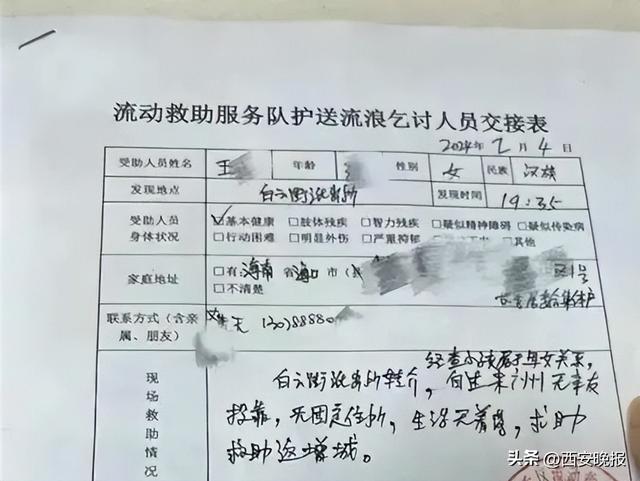 流动救助服务队护送流浪乞讨人员交接表
2024年2月4
受助人员姓名 王 年龄 性别 女 民族 汉族
发现地点 白云街派出所 发现时间 19:35
受助人员 ☑基本健康 □肢体残疾 □智力残疾 □疑似精神障碍 □疑似传染病
身体状况 □行动困难 □明显外伤 □严重抑郁 □其他
家庭地址 □有 海南 省 海口 市(县 区1号
□不清楚 集体户
联系方式(含亲 无 13078880
属、朋友)
现场救助情况
经查小孩属于母女关系,
白云街派出所转介,自述来广州无亲友
投靠,无固定住所,生活无着落,求助
救助返增城。
头条 @西安晚报